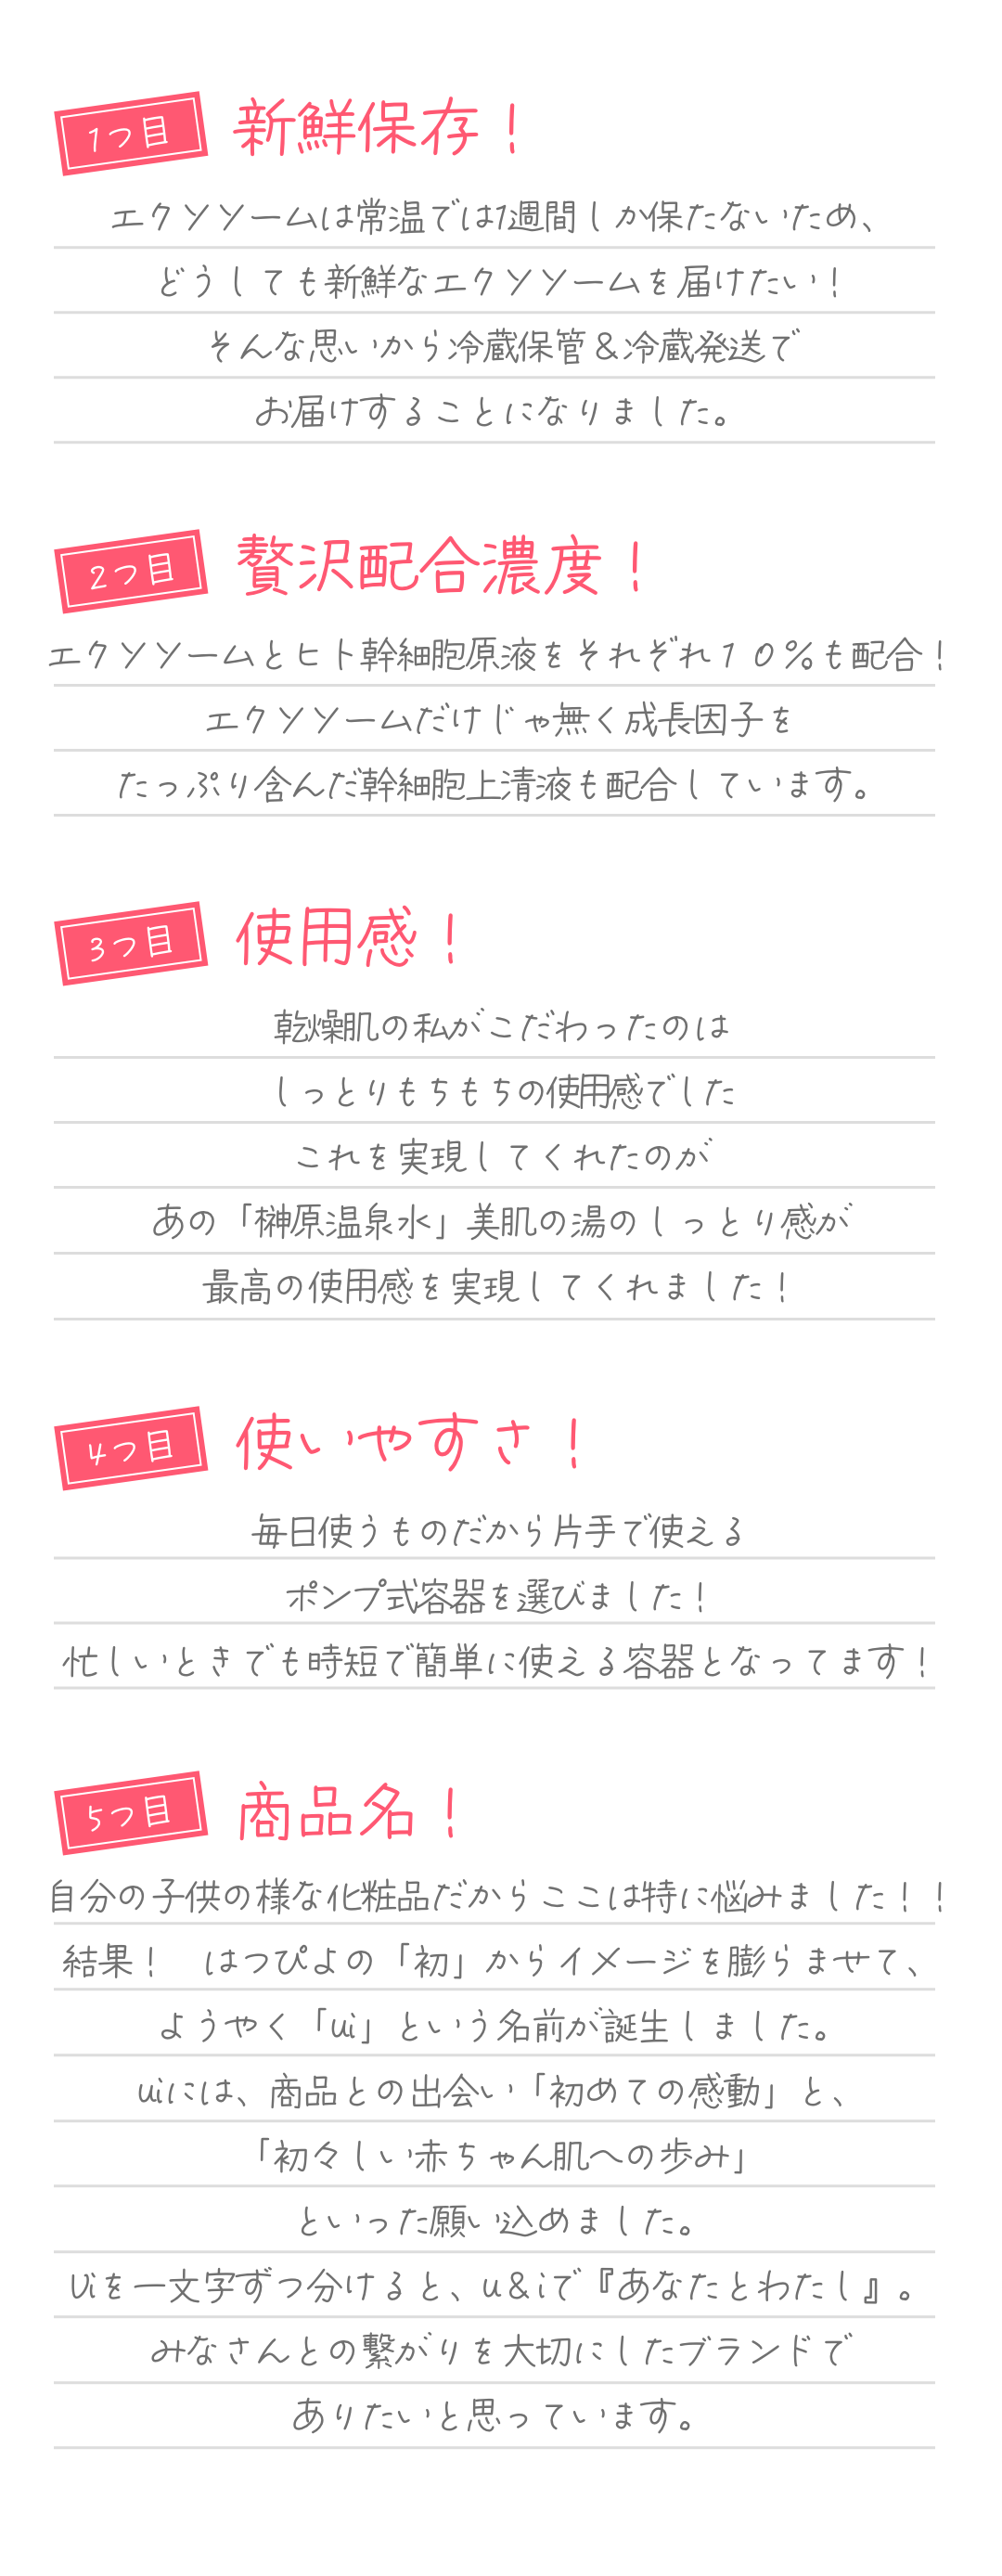 1つ目 新鮮保存！
エクソソームは常温では1週間しか保たないため、
どうしても新鮮なエクソソームを届けたい！
そんな思いから冷蔵保管＆冷蔵発送で
お届けすることになりました。
2つ目 贅沢配合濃度！
エクソソームとヒト幹細胞原液をそれぞれ１０％も配合！
エクソソームだけじゃ無く成長因子を
たっぷり含んだ幹細胞上清液も配合しています。
3つ目 使用感！
乾燥肌の私がこだわったのは
しっとりもちもちの使用感でした
これを実現してくれたのが
あの「榊原温泉水」美肌の湯のしっとり感が
最高の使用感を実現してくれました！
4つ目 使いやすさ！
毎日使うものだから片手で使える
ポンプ式容器を選びました！
忙しいときでも時短で簡単に使える容器となってます！
5つ目 商品名！
自分の子供の様な化粧品だからここは特に悩みました！！
結果！　はつぴよの「初」からイメージを膨らませて、
ようやく「ui」という名前が誕生しました。
uiには、商品との出会い「初めての感動」と、
「初々しい赤ちゃん肌への歩み」
といった願い込めました。
Uiを一文字ずつ分けると、u＆iで『あなたとわたし』。
みなさんとの繋がりを大切にしたブランドで
ありたいと思っています。